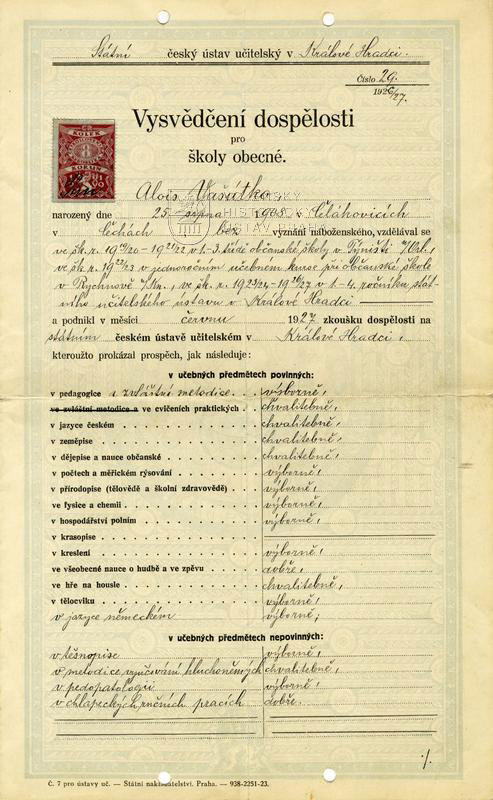 Státní český ústav učitelský v Králové Hradci.
Číslo 29.
1926/27.
Vysvědčení dospělosti
pro
školy obecné.
KOLEK
8
KORUN
Alois Vašátko,
narozený dne 25. srpna 1908 v Čelákovicích
v Čechách bez vyznání náboženského, vzdělával se
ve šk. r. 1919/20 – 1921/22 v 1.-3. třídě občanské školy v Týništi n/Orl.,
ve šk. r. 1922/23 v jednoročním učebném kurse při občanské škole
v Rychnově n/Kn., ve šk. r. 1923/24 – 1926/27 v 1.-4. ročníku stát-
ního učitelského ústavu v Králové Hradci
a podnikl v měsíci červnu 1927 zkoušku dospělosti na
státním českém ústavě učitelském v Králové Hradci,
kteroužto prokázal prospěch, jak následuje:
v učebných předmětech povinných:
v pedagogice a zvláštní metodice výborně,
ve zvláštní metodice a ve cvičeních praktických chvalitebně,
v jazyce českém chvalitebně,
v zeměpise chvalitebně,
v dějepise a nauce občanské chvalitebně,
v počtech a měřickém rýsování výborně,
v přírodopise (tělovědě a školní zdravovědě) výborně,
ve fysice a chemii výborně,
v hospodářství polním výborně,
v krasopise
v kreslení výborně,
ve všeobecné nauce o hudbě a ve zpěvu dobře,
ve hře na housle chvalitebně,
v tělocviku výborně,
v jazyce německém výborně;
v učebných předmětech nepovinných:
v těsnopise výborně,
v metodice vyučování hluchoněmých chvalitebně,
v pedopatologii výborně,
v chlapeckých ručních pracích dobře.
./.
Č. 7 pro ústavy uč. — Státní nakladatelství. Praha. — 938-2251-23.